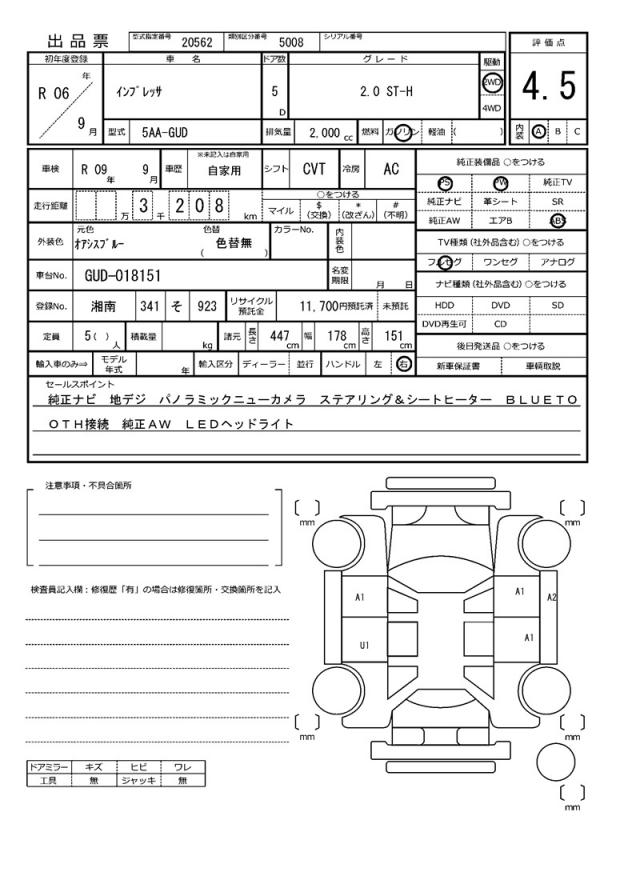 出品票 型式指定番号 20562 類別区分番号 5008 シリアル番号
初年度登録 車 名 ドア数 グレード 駆動 評価点
R 06 年 9 月 インプレッサ 5 D 2.0 ST-H 2WD 4WD 4.5
型式 5AA-GUD 排気量 2,000 cc 燃料 ガソリン 軽油 ( ) 内装 A B C
車検 R 09 年 9 月 車歴 ※未記入は自家用 自家用 シフト CVT 冷房 AC
純正装備品 ○をつける
PS PW 純正TV
純正ナビ 革シート SR
純正AW エアB ABS
走行距離 万 3 千 2 0 8 km ○をつける
マイル $ (交換) * (改ざん) # (不明)
TV種類 (社外品含む) ○をつける
フルセグ ワンセグ アナログ
外装色 元色 オアシスブルー 色替 ( 色替無 ) カラーNo. 内装色
ナビ種類 (社外品含む) ○をつける
HDD DVD SD
DVD再生可 CD
車台No. GUD-018151 名変期限 月 日
登録No. 湘南 341 そ 923 リサイクル預託金 11,700円預託済 未預託
定員 5( ) 人 積載量 kg 諸元 長さ 447 cm 幅 178 cm 高さ 151 cm
後日発送品 ○をつける
新車保証書 車輌取説
輸入車のみ⇒ モデル年式 年 輸入区分 ディーラー 並行 ハンドル 左 右
セールスポイント
純正ナビ 地デジ パノラミックニューカメラ ステアリング&シートヒーター BLUETO
OTH接続 純正AW LEDヘッドライト
注意事項・不具合箇所
検査員記入欄:修復歴「有」の場合は修復箇所・交換箇所を記入
[ ] mm
[ ] mm
A1 A1 A2
U1 A1
[ ] mm
[ ] mm
[ ] mm
ドアミラー キズ ヒビ ワレ
工具 無 ジャッキ 無